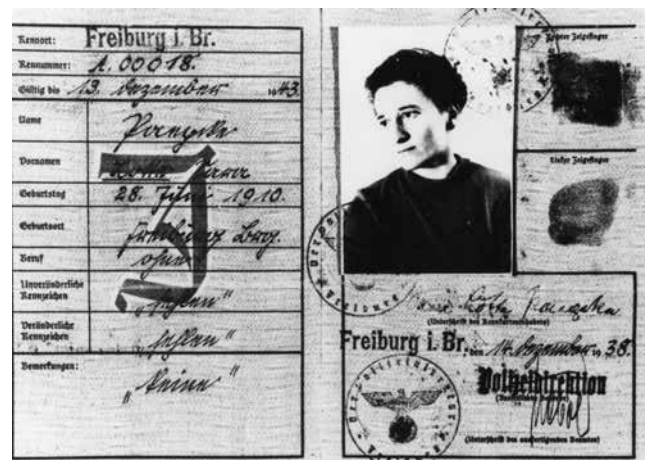 Kennort: Freiburg i. Br.
Kennummer: A. 00018.
Gültig bis 13. Dezember 1943.
Name
Vornamen
Geburtstag 28. Juni 1910.
Geburtsort Freiburg Brsg.
Beruf ohne
Unveränderliche
Kennzeichen „fehlen"
Veränderliche
Kennzeichen „fehlen"
Bemerkungen:
„keine"
J
Rechter Zeigefinger
Linker Zeigefinger
Lotte
(Unterschrift des Kennkarteninhabers)
Freiburg i. Br., den 14. Dezember 1938.
Polizeidirektion
(Unterschrift des ausfertigenden Beamten)